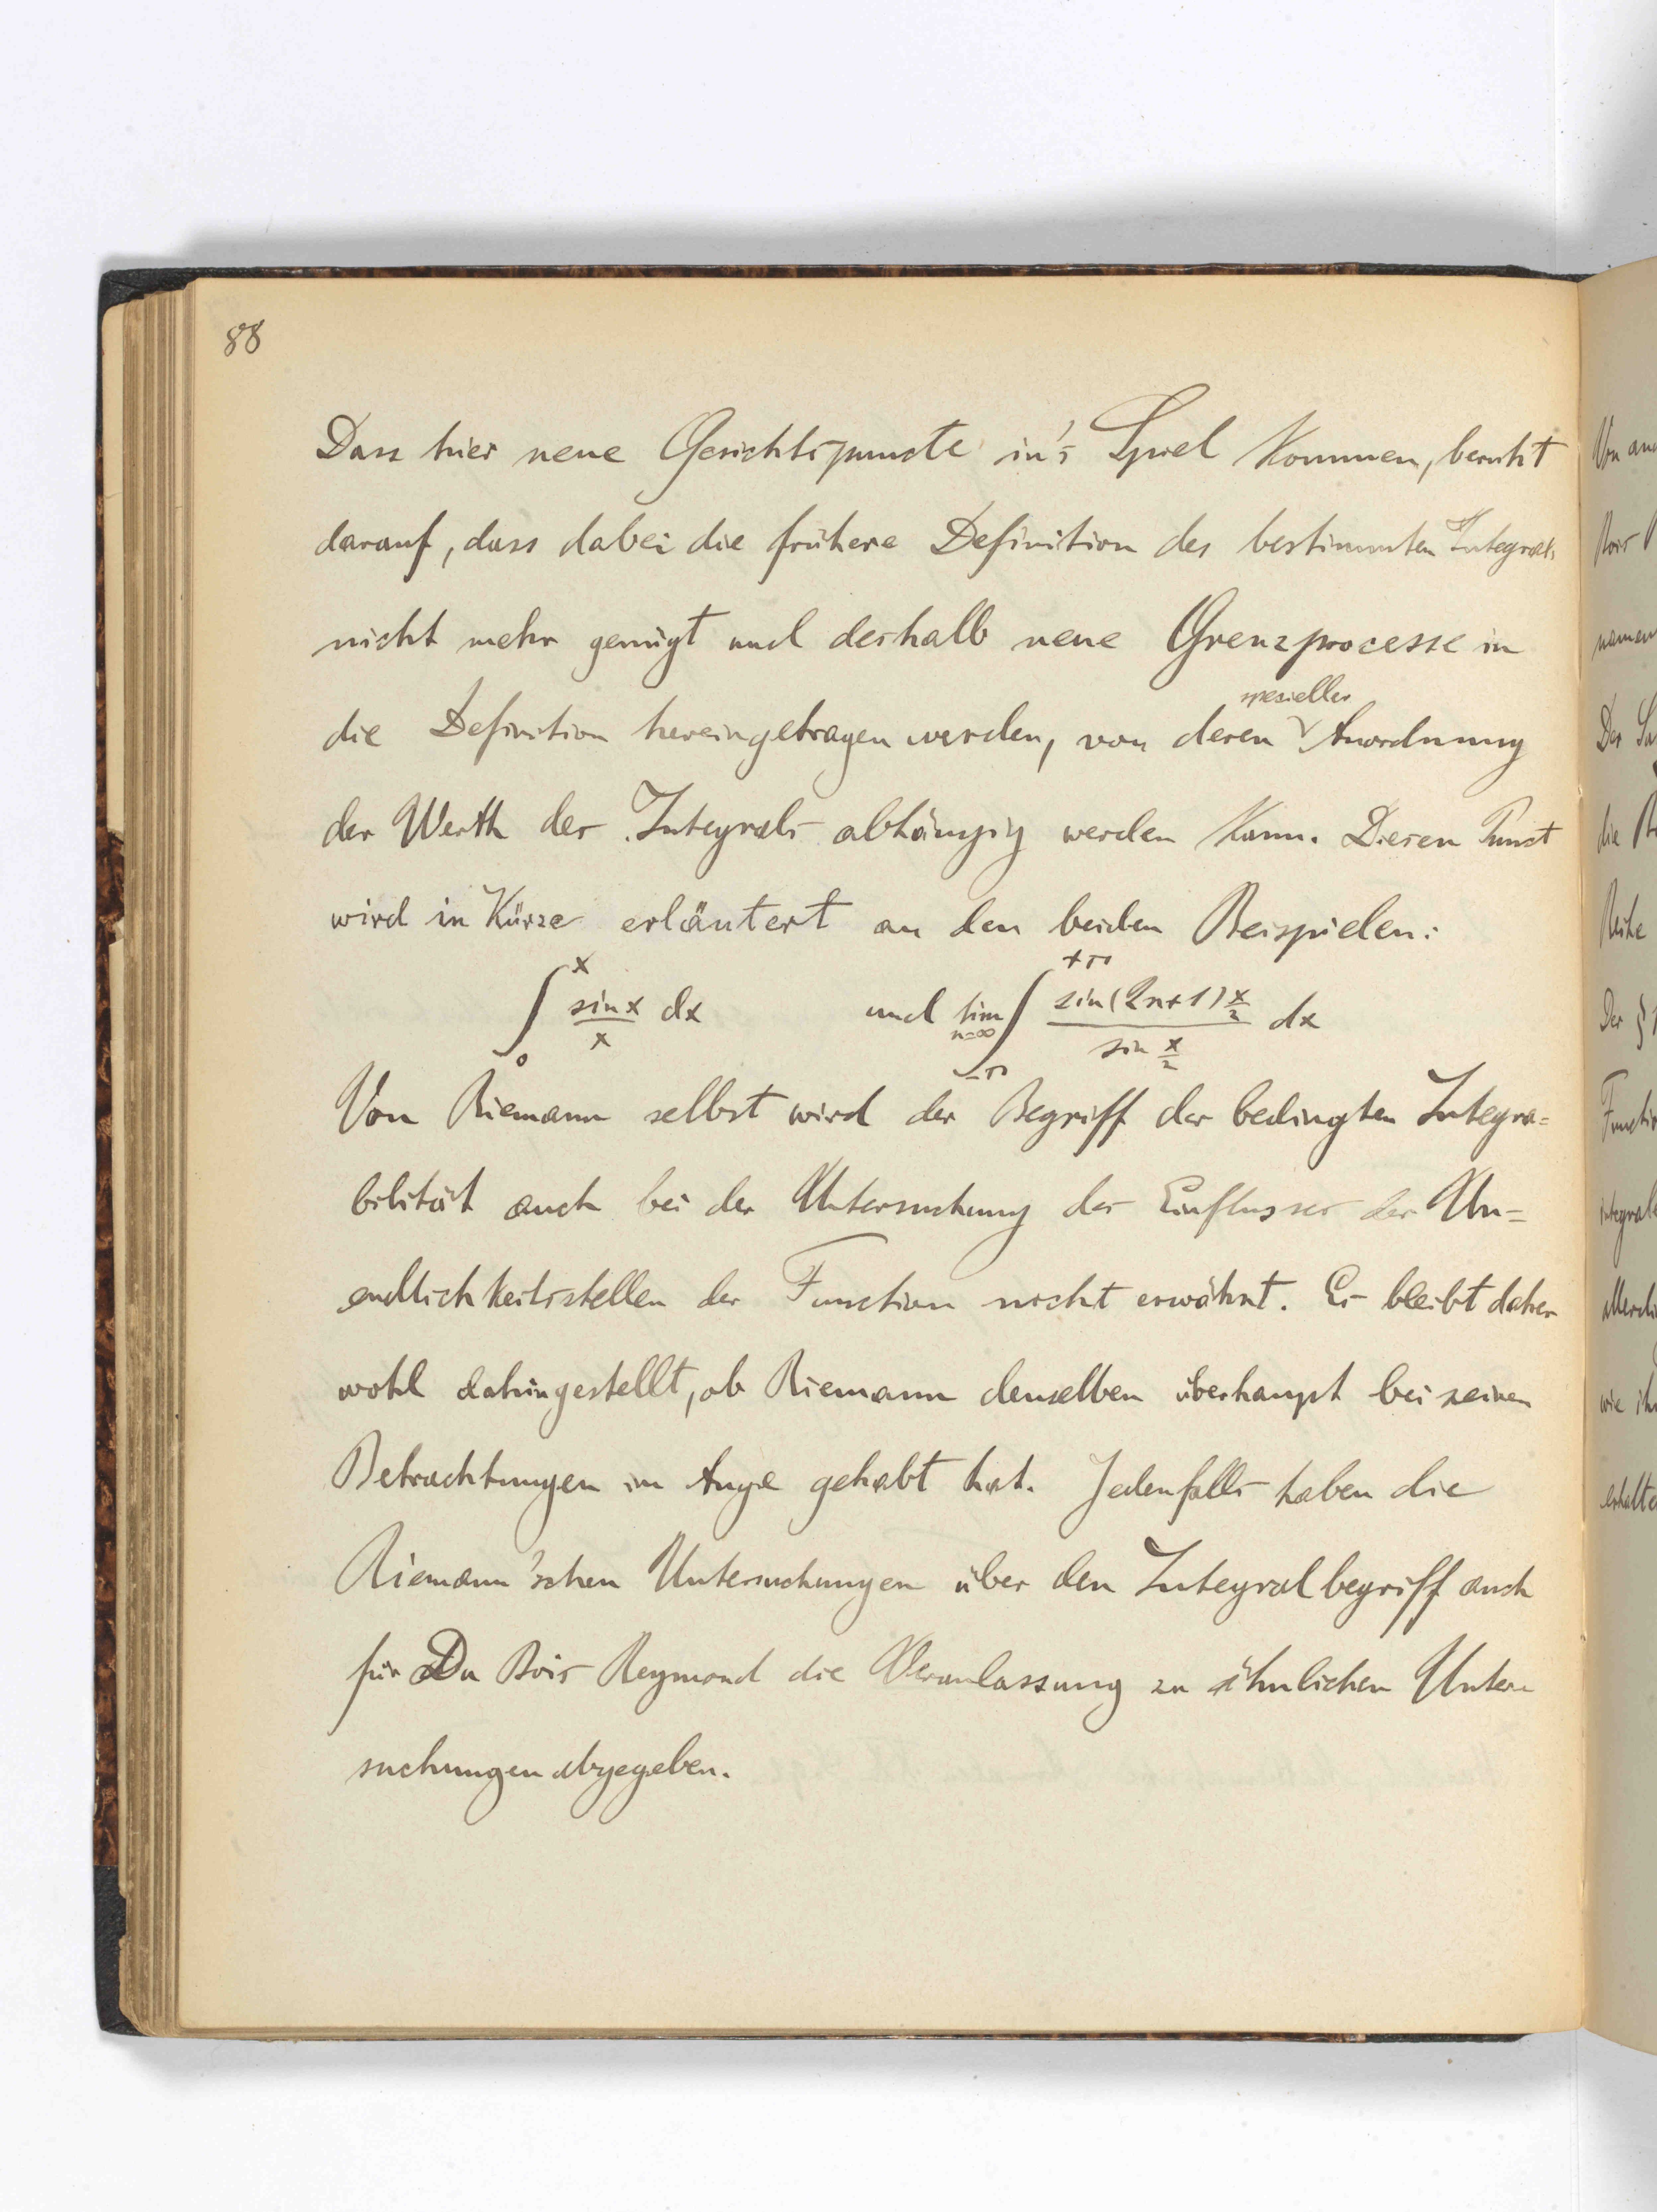 88
Dass hier neue Gesichtspuncte in's Spiel kommen, beruht
darauf, dass dabei die frühere Definition des bestimmten Integrals
nicht mehr genügt und deshalb neue Grenzprocesse in
die Definition hereingetragen werden, von deren spezieller Anordnung
der Werth des Integrals abhängig werden kann. Diesen Punct
wird in Kürze erläutert an den beiden Beispielen:
∫₀ˣ sin x / x dx und lim n=∞ ∫₋π⁺π sin(2n+1) x/2 / sin x/2 dx
Von Riemann selbst wird der Begriff der bedingten Integra=
bilität auch bei der Untersuchung des Einflusses der Un=
endlichkeitsstellen der Function nicht erwähnt. Es bleibt daher
wohl dahingestellt, ob Riemann denselben überhaupt bei seinen
Betrachtungen im Auge gehabt hat. Jedenfalls haben die
Riemann'schen Untersuchungen über den Integralbegriff auch
für Du Bois Reymond die Veranlassung zu ähnlichen Unter=
suchungen abgegeben.
Von
namen
Der
die
Reihe
Der §
Functio
integral
allerdi
wie ih
erhalte